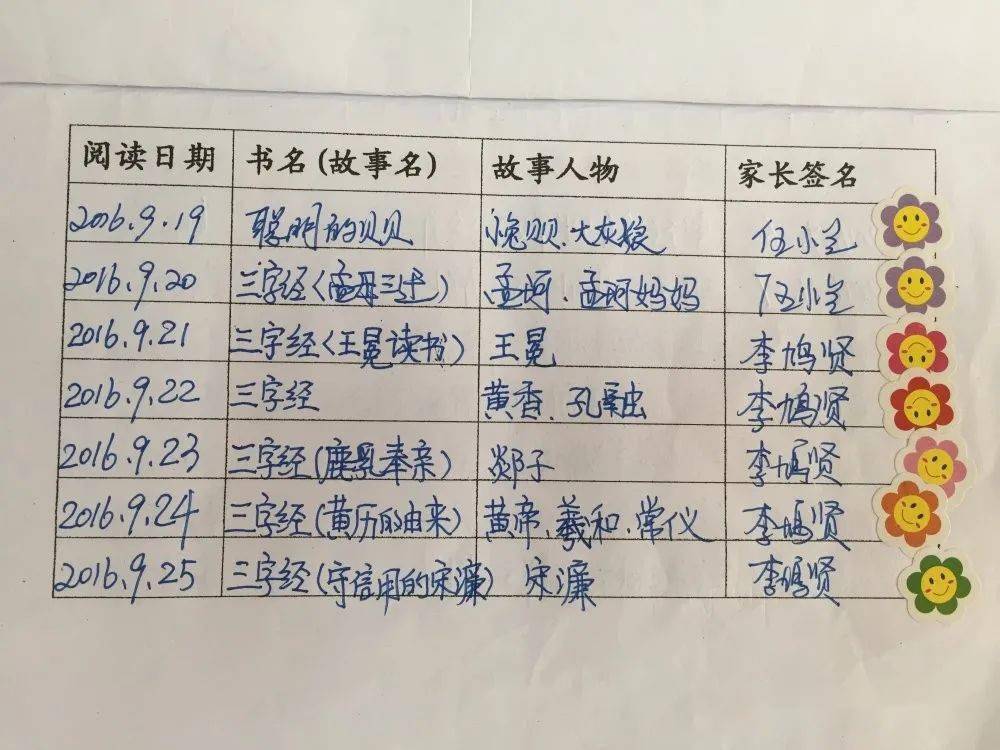 阅读日期 书名(故事名) 故事人物 家长签名
2016.9.19 聪明的贝贝 兔贝、大灰狼 伍小兰
2016.9.20 三字经(孟母三迁) 孟轲、孟轲妈妈 伍小兰
2016.9.21 三字经(王冕读书) 王冕 李鸠贤
2016.9.22 三字经 黄香、孔融 李鸠贤
2016.9.23 三字经(鹿乳奉亲) 郯子 李鸠贤
2016.9.24 三字经(黄历的由来) 黄帝、羲和、常仪 李鸠贤
2016.9.25 三字经(守信用的宋濂) 宋濂 李鸠贤